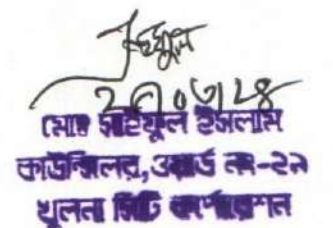 ২৭।০৩।২৪
মোঃ সাইফুল ইসলাম
কাউন্সিলর, ওয়ার্ড নং-২৯
খুলনা সিটি কর্পোরেশন